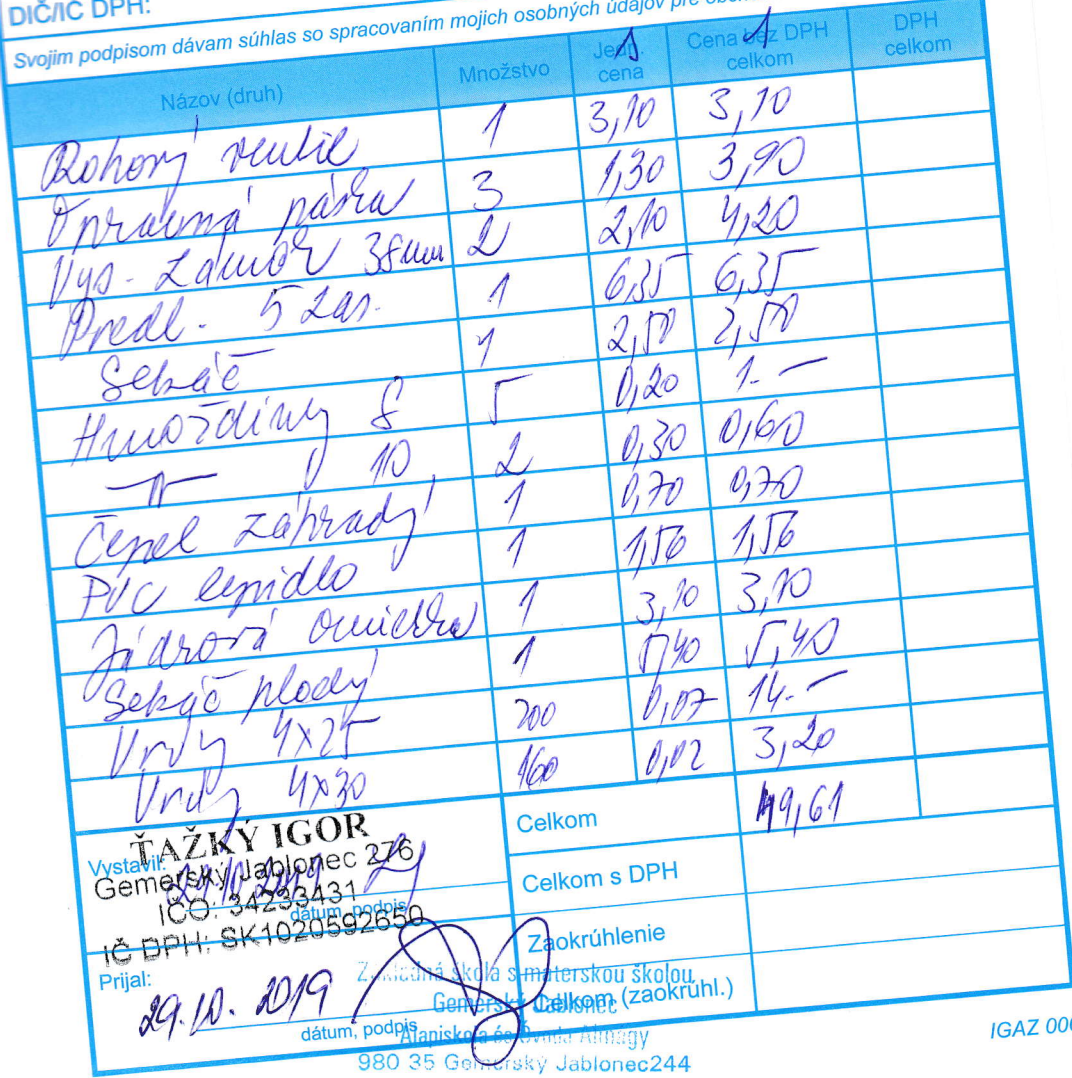 DIČ/IČ DPH:
Svojim podpisom dávam súhlas so spracovaním mojich osobných údajov pre
Názov (druh) Množstvo Jedn. cena Cena bez DPH celkom DPH celkom
1 1
Rohový ventil 1 3,10 3,10
Opravná páska 3 1,30 3,90
Vys. zámok 38mm 2 2,10 4,20
Predl. 5 zás. 1 6,35 6,35
Sekáč 1 2,50 2,50
Hmoždinky 8 5 0,20 1.-
10 2 0,30 0,60
Čepel záhrady 1 0,70 0,70
PVC lepidlo 1 1,56 1,56
Jádrová omietka 1 3,10 3,10
Sekáč plochý 1 5,40 5,40
Vrdy 4x25 200 0,07 14.-
Vrdy 4x30 160 0,02 3,20
Celkom 49,61
ŤAŽKÝ IGOR
Vystavil:
Gemerský Jablonec 276
IČO: 34233431
dátum, podpis
IČ DPH: SK1020592650
Celkom s DPH
Zaokrúhlenie
Prijal:
29.10.2019
dátum, podpis
Celkom (zaokrúhl.)
Základná škola s materskou školou
Gemerský Jablonec
Alapiskola és Óvoda Almágy
980 35 Gemerský Jablonec244
IGAZ